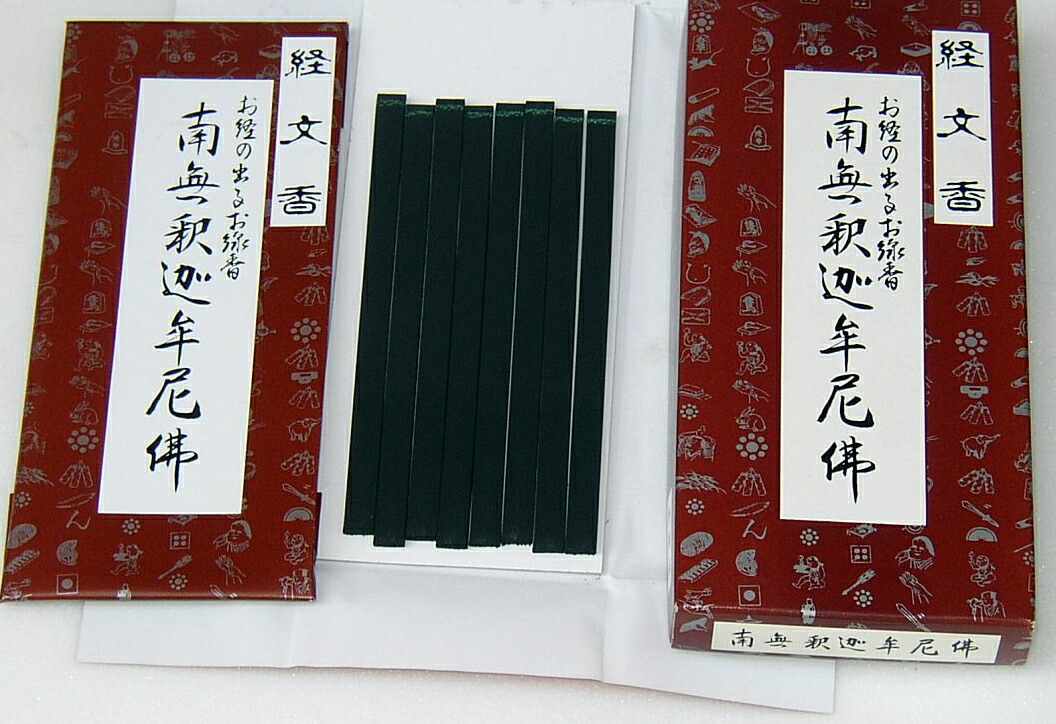 経文香
お経の出るお線香
南無釈迦牟尼佛
経文香
お経の出るお線香
南無釈迦牟尼佛
南無釈迦牟尼佛